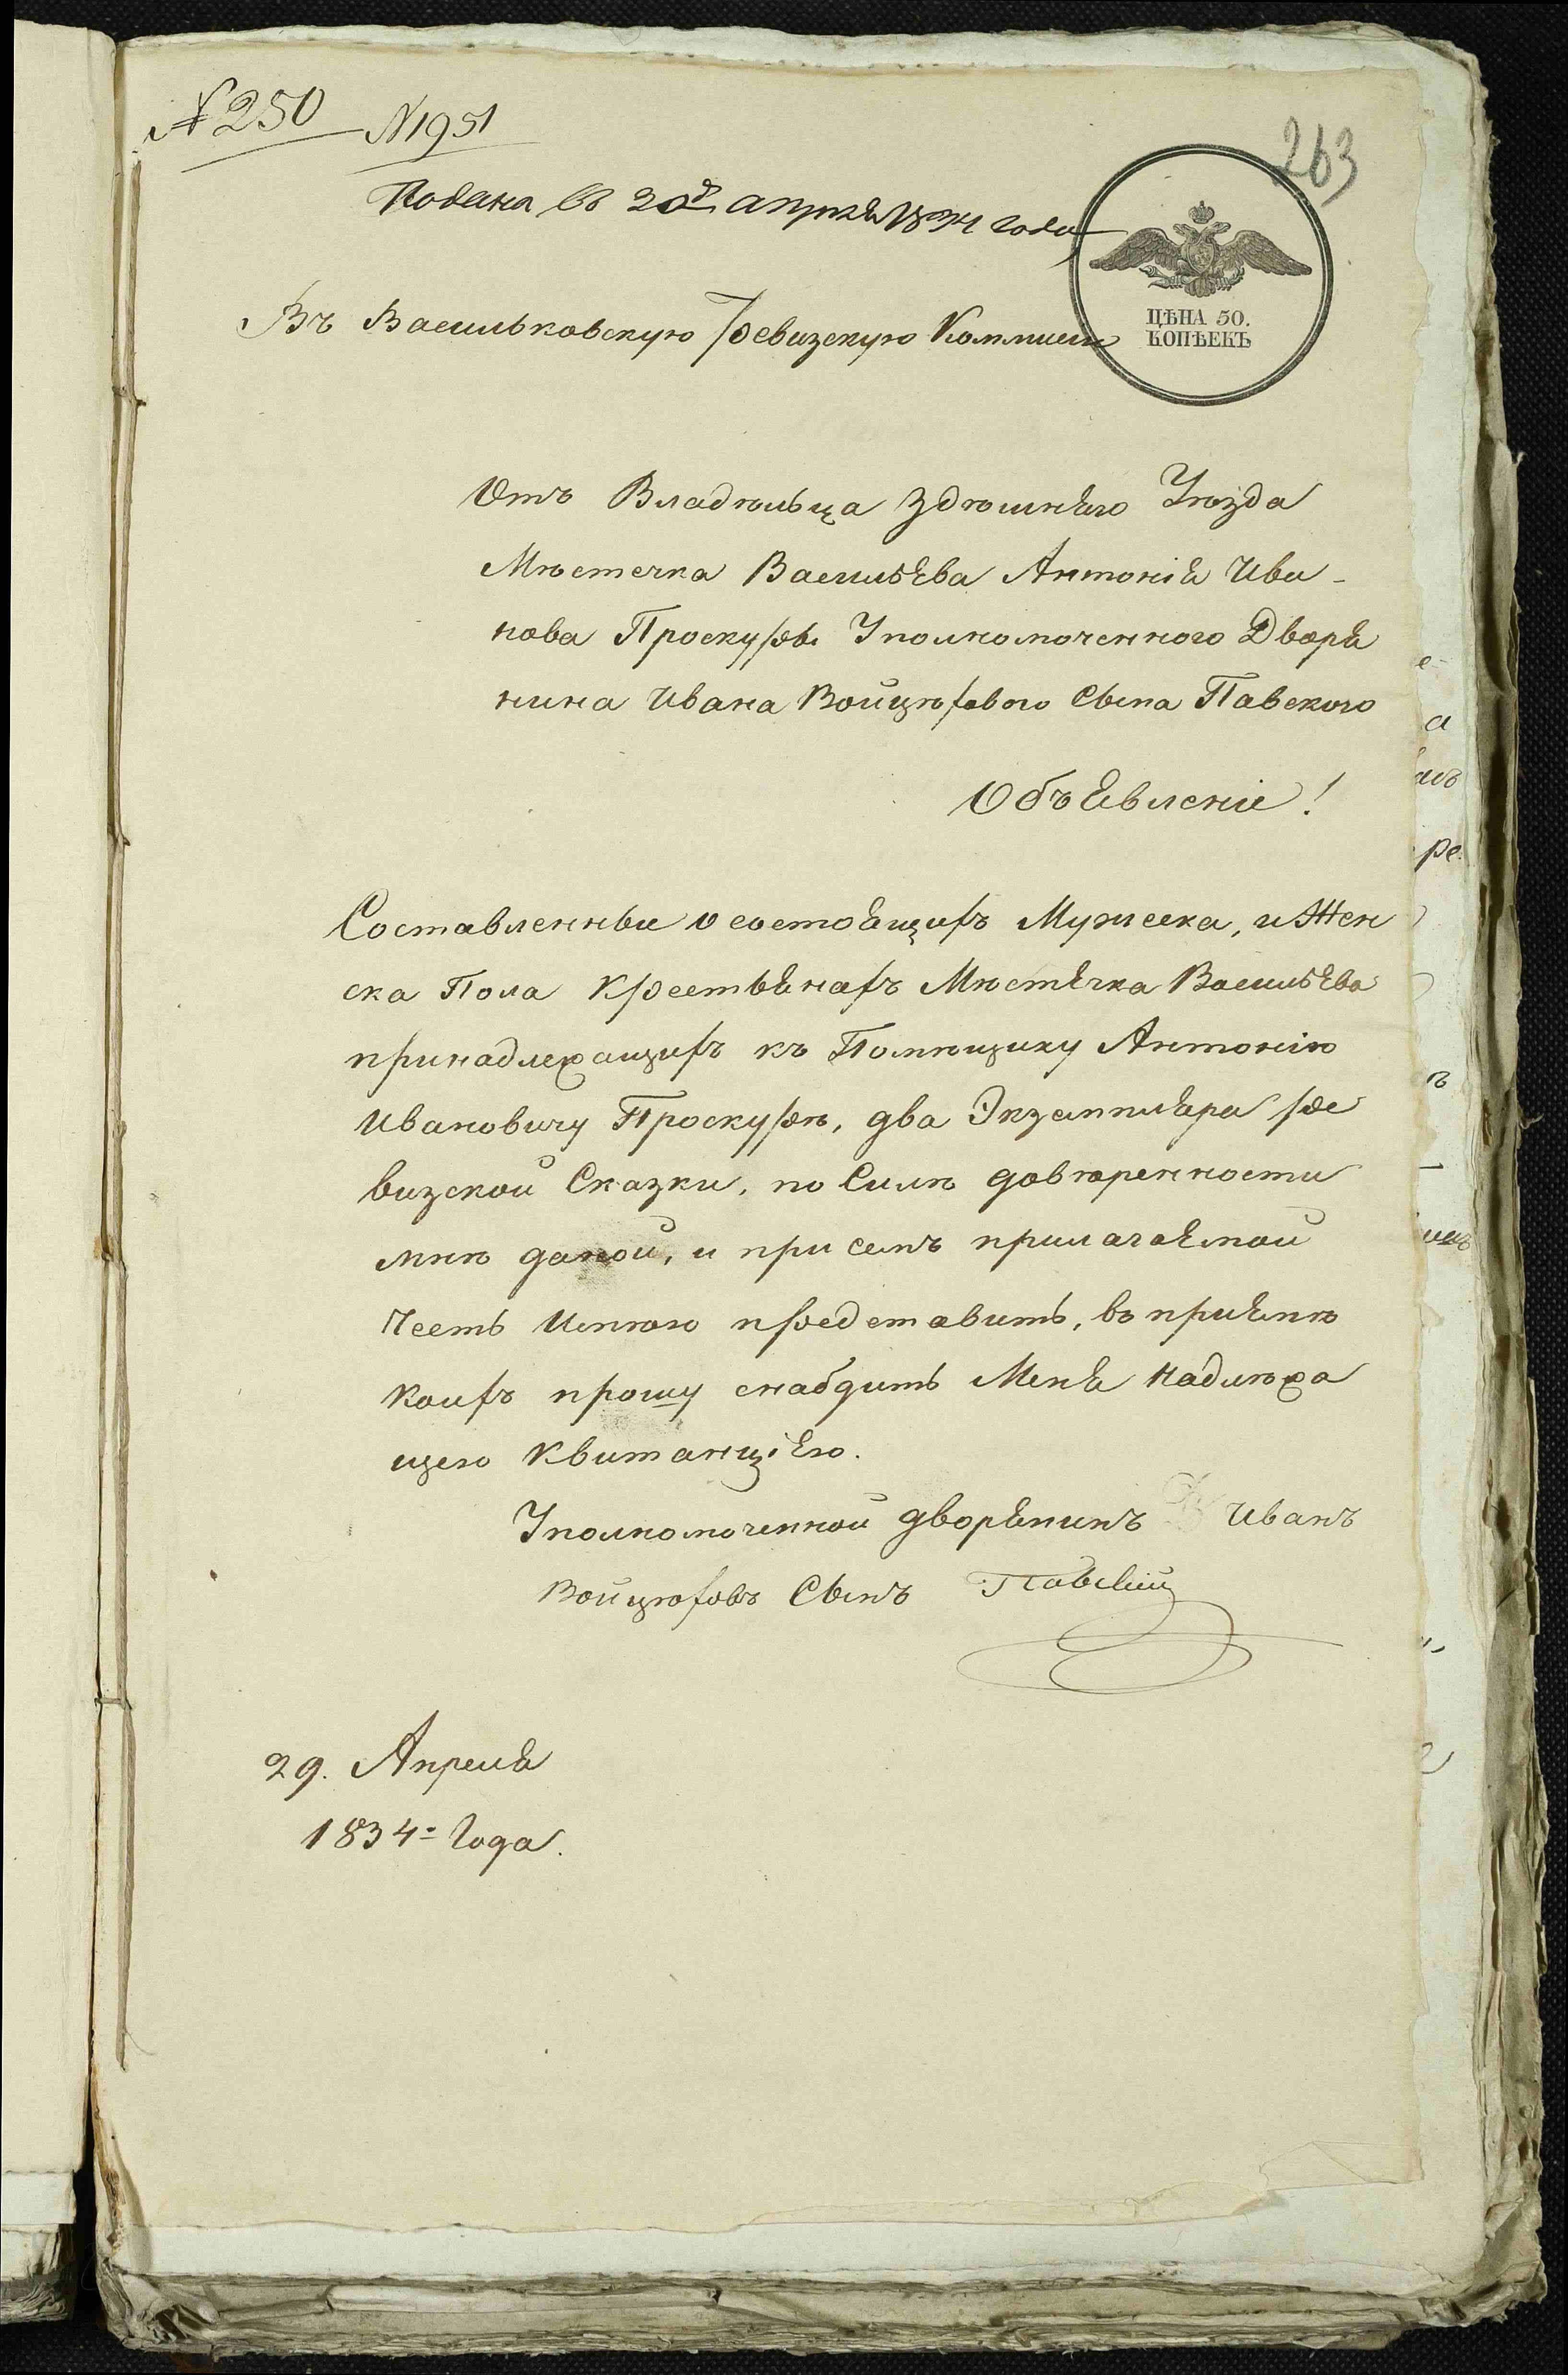 № 250
№ 1951
263
Подана въ 30й апреля 1834 года
ЦѢНА 50.
КОПѢЕКЪ
Въ Васильковскую Ревизскую Коммиси
Отъ Владѣльца Здѣшняго Уѣзда
Мѣстечка Васильева Антонія Ива-
нова Проскуры Уполномоченного Дворя
нина Ивана Войцѣхового Сына Павского
Объявленіе!
Составленныи о состоящихъ Мужеска, и Жен
ска Пола Крестьянахъ Мѣстечка Васильева
принадлежащихъ къ Помѣщику Антонію
Ивановичу Проскурѣ, два Экземпляра Ре
визской Сказки, по Силѣ довѣренности
мнѣ даной, и при семъ прилагаемой
Честь Имѣю представить, въ пріемѣ
Коихъ прошу снабдить Меня Надлѣжа
щею Квитанціею.
Уполномоченной дворянинъ Иванъ
Войцѣховъ Сынъ Павскій
29. Апреля
1834= Года.